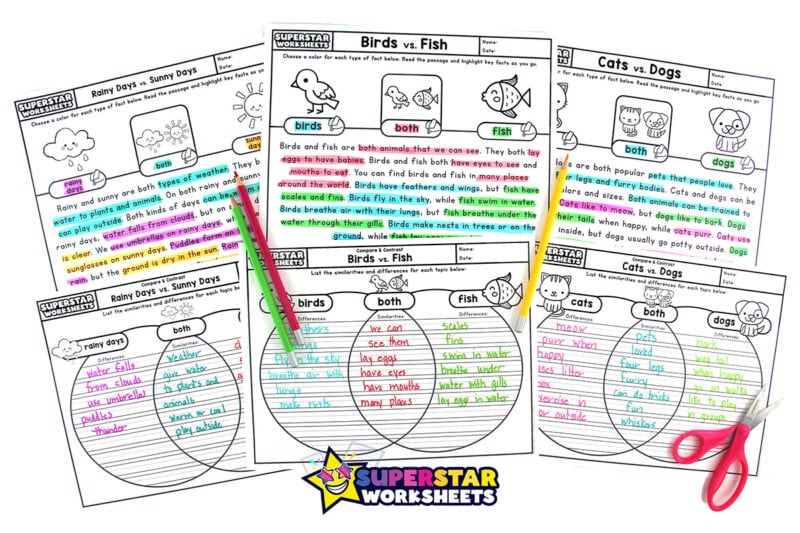 SUPERSTAR
WORKSHEETS
Rainy Days vs. Sunny Days
Name:
Date:
Choose a color for each type of fact below. Read the passage and highlight key facts as you go.
rainy
days
both
sunny
days
Rainy and sunny are both types of weather. They b
water to plants and animals. On both rainy and sunny
can play outside. Both kinds of days can be
rainy days, water falls from clouds, but on
is clear. We use umbrellas on rainy days,
sunglasses on sunny days. Puddles form on
rain, but the ground is dry in the sun. Rain
SUPERSTAR
WORKSHEETS
Birds vs. Fish
Name:
Date:
Choose a color for each type of fact below. Read the passage and highlight key facts as you go.
birds
both
fish
Birds and fish are both animals that we can see. They both lay
eggs to have babies. Birds and fish both have eyes to see and
mouths to eat. You can find birds and fish in many places
around the world. Birds have feathers and wings, but fish have
scales and fins. Birds fly in the sky, while fish swim in water.
Birds breathe air with their lungs, but fish breathe under the
water through their gills. Birds make nests in trees or on the
ground, while fish lay
Cats vs. Dogs
Name:
Date:
Choose a color for each type of fact below. Read the passage and highlight key facts as you go.
both
dogs
are both popular pets that people love. They
four legs and furry bodies. Cats and dogs can be
colors and sizes. Both animals can be trained to
Cats like to meow, but dogs like to bark. Dogs
their tails when happy, while cats purr. Cats use
inside, but dogs usually go potty outside. Dogs
SUPERSTAR
WORKSHEETS
Compare & Contrast
Rainy Days vs. Sunny Days
List the similarities and differences for each topic below:
rainy days
both
Differences:
Similarities:
water falls
from clouds
use umbrellas
puddles
thunder
weather
give water
to plants and
animals
warm or cool
play outside
SUPERSTAR
WORKSHEETS
Compare & Contrast
Birds vs. Fish
Name:
Date:
List the similarities and differences for each topic below:
birds
both
fish
Differences:
Similarities:
Differences:
fly in the sky
breathe air with
lungs
make nests
we can
see them
lay eggs
have eyes
have mouths
many places
scales
fins
swim in water
breathe under
water with gills
lay eggs in water
Compare & Contrast
Cats vs. Dogs
Name:
Date:
List the similarities and differences for each topic below:
cats
both
dogs
Differences:
Similarities:
Differences:
meow
purr when
happy
uses litter
box
exercise in
or outside
pets
loved
four legs
furry
can do tricks
fun
whiskers
bark
wag tail
when happy
go on walks
like to play
in groups
SUPERSTAR
WORKSHEETS